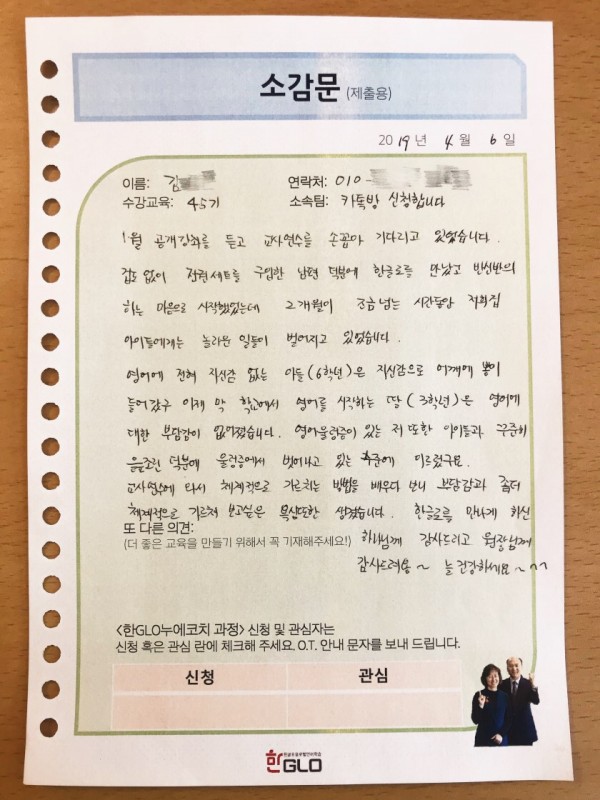 소감문 (제출용)
2019년 4월 6일
이름: 김
연락처: 010-
수강교육: 45기
소속팀: 카톡방 신청합니다
1월 공개강좌를 듣고 교사연수를 손꼽아 기다리고 있었습니다.
겁도 없이 전권세트를 구입한 남편 덕분에 한글로를 만났고 반신반의
하는 마음으로 시작했었는데 2개월이 조금 넘는 시간동안 저희집
아이들에게는 놀라운 일들이 벌어지고 있었습니다.
영어에 전혀 자신감 없는 아들(6학년)은 자신감으로 어깨에 뽕이
들어갔구 이제 막 학교에서 영어를 시작하는 딸(3학년)은 영어에
대한 부담감이 없어졌습니다. 영어울렁증이 있는 저 또한 아이들과 꾸준히
읊조린 덕분에 울렁증에서 벗어나고 있는 수준에 이르렀구요.
교사연수에 와서 체계적으로 가르치는 방법을 배우다 보니 부담감과 좀더
체계적으로 가르쳐 보고싶은 욕심또한 생겼습니다. 한글로를 만나게 하신
하나님께 감사드리고 원장님께
감사드려용~ 늘 건강하세요~^^
또 다른 의견:
(더 좋은 교육을 만들기 위해서 꼭 기재해주세요!)
<한GLO누에코치 과정> 신청 및 관심자는
신청 혹은 관심 란에 체크해 주세요. O.T. 안내 문자를 보내 드립니다.
신청 관심
한GLO